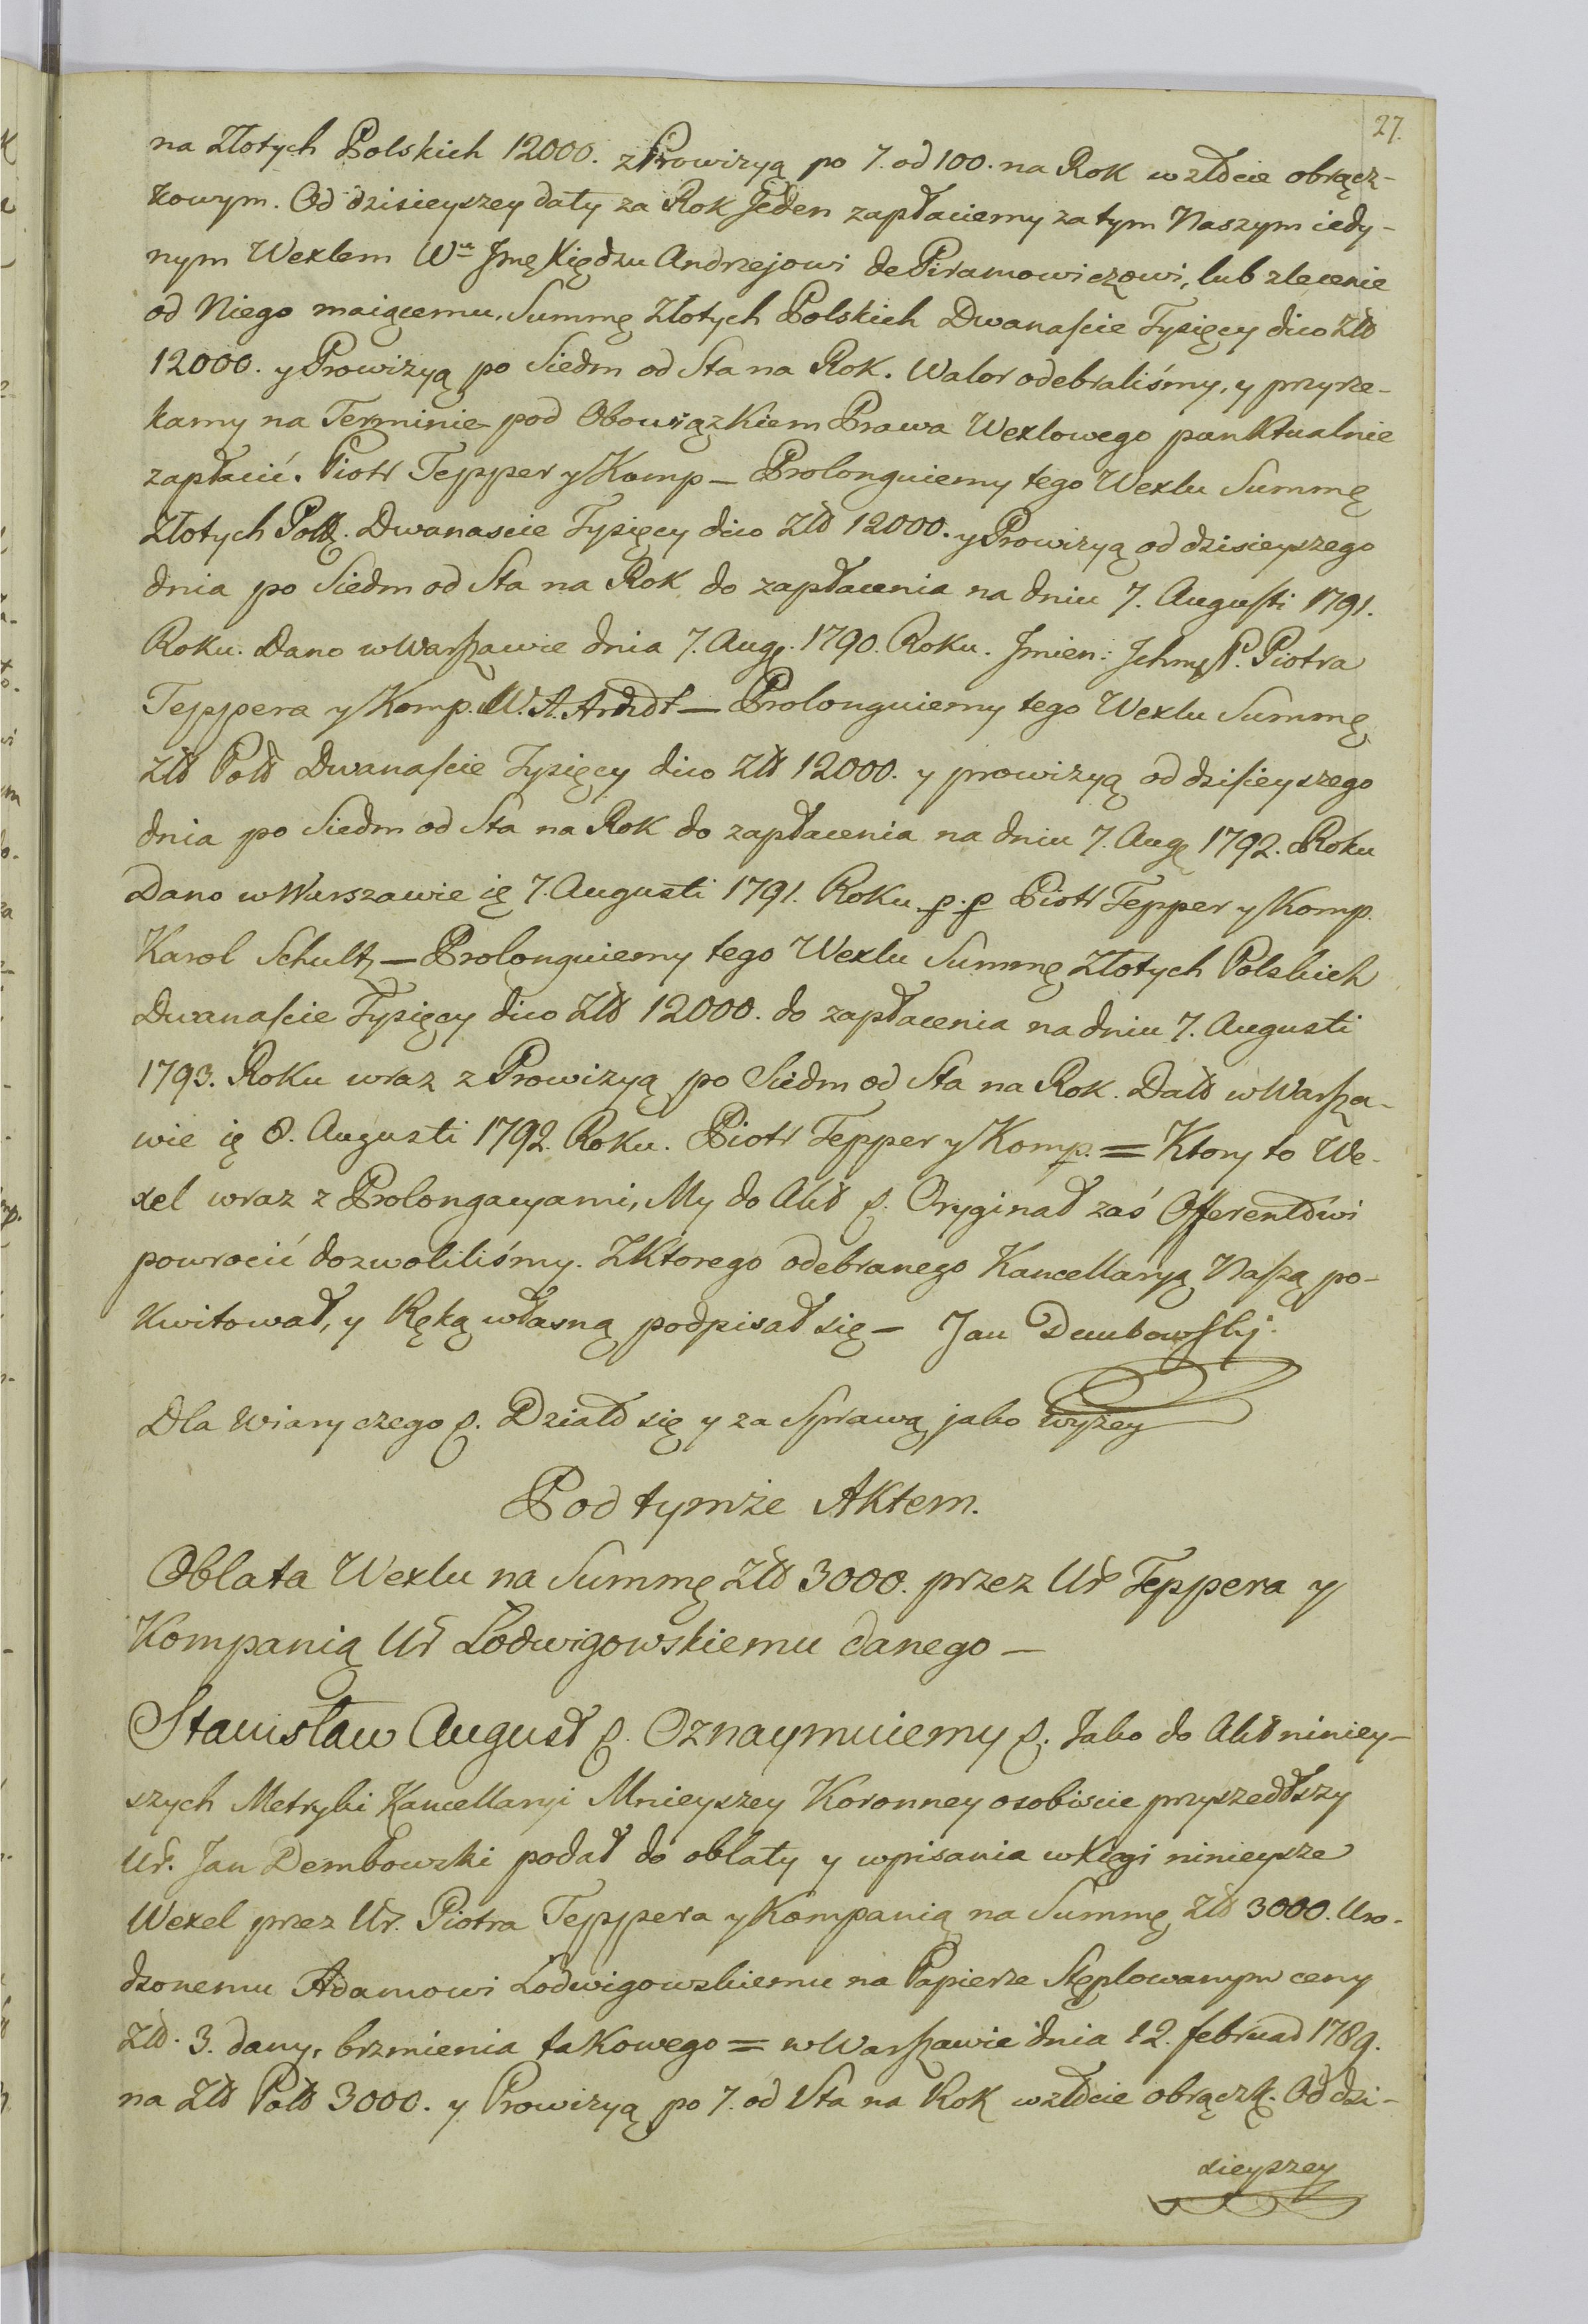 27.
na Złotych Polskich 12000. z Prowizyą po 7. od 100. na Rok w złocie obrącz-
kowym. Od dzisieyszey daty za Rok Jeden zapłaciemy za tym Naszym iedy-
nym Wexlem Wu Jmę Xiędzu Andrzejowi de Piramowiczowi, lub zlecenie
od Niego maiącemu, Summę Złotych Polskich Dwanaście Tysięcy dico Złł
12000. y Prowizyą po Siedm od Sta na Rok. Walor odebraliśmy, y przyrze-
kamy na Terminie pod Obowiązkiem Prawa Wexlowego punktualnie
zapłacić. Piotr Tepper y Komp — Prolonguiemy tego Wexlu Summę
Złotych Pollę. Dwanascie Tysięcy dico Złł 12000. y Prowizyą od dzisieyszego
dnia po Siedm od Sta na Rok do zapłacenia na dniu 7. Augusti 1791.
Roku. Dano w Warszawie dnia 7. Aug. 1790. Roku. Jmien: Jchmę P. Piotra
Teppera y Komp. W. A. Arndt — Prolonguiemy tego Wexlu Summę
Złł Poll Dwanaście Tysięcy dico Złł 12000. y prowizyą od dzisieyszego
dnia po Siedm od Sta na Rok do zapłacenia na dniu 7. Aug 1792. Roku
Dano w Warszawie ię 7. Augusti 1791. Roku p. p Piotr Tepper y Komp.
Karol Schultz — Prolonguiemy tego Wexlu Summę Złotych Polskich
Dwanaście Tysięcy dico Złł 12000. do zapłacenia na dniu 7. Augusti
1793. Roku wraz z Prowizyą po Siedm od Sta na Rok. Datt w Warsza-
wie ię 8. Augusti 1792. Roku. Piotr Tepper y Komp. = Ktory to We-
xel wraz z Prolongacyami, My do Akt p. Oryginał zaś Offerentowi
powrocić dozwoliliśmy. Z Ktorego odebranego Kancellaryą Naszą po-
kwitował, y Ręką własną podpisał się — Jan Dembowskj.
Dla Wiary czego p. Działo się y za Sprawą jako wyżey
Pod tymże Aktem.
Oblata Wexlu na Summę Złł 3000. przez Ur Teppera y
Kompanią Ur Lodwigowskiemu danego —
Stanisław August p. Oznaymuiemy p. Jako do Akt niniey-
szych Metryki Kancellaryi Mnieyszey Koronney osobiscie przyszedłszy
Ur. Jan Dembowski podał do oblaty y wpisania w Księgi ninieysze
Wexel przez Ur. Piotra Teppera y Kompanią na Summę Złł 3000. Uro-
dzonemu Adamowi Lodwigowskiemu na Papierze Stęplowanym ceny
Złł. 3. dany, brzmienia takowego = w Warszawie dnia 12. februar 1789.
na Złł Poll 3000. y Prowizyą po 7. od Sta na Rok w złocie obrączk. Od dzi-
sieyszey